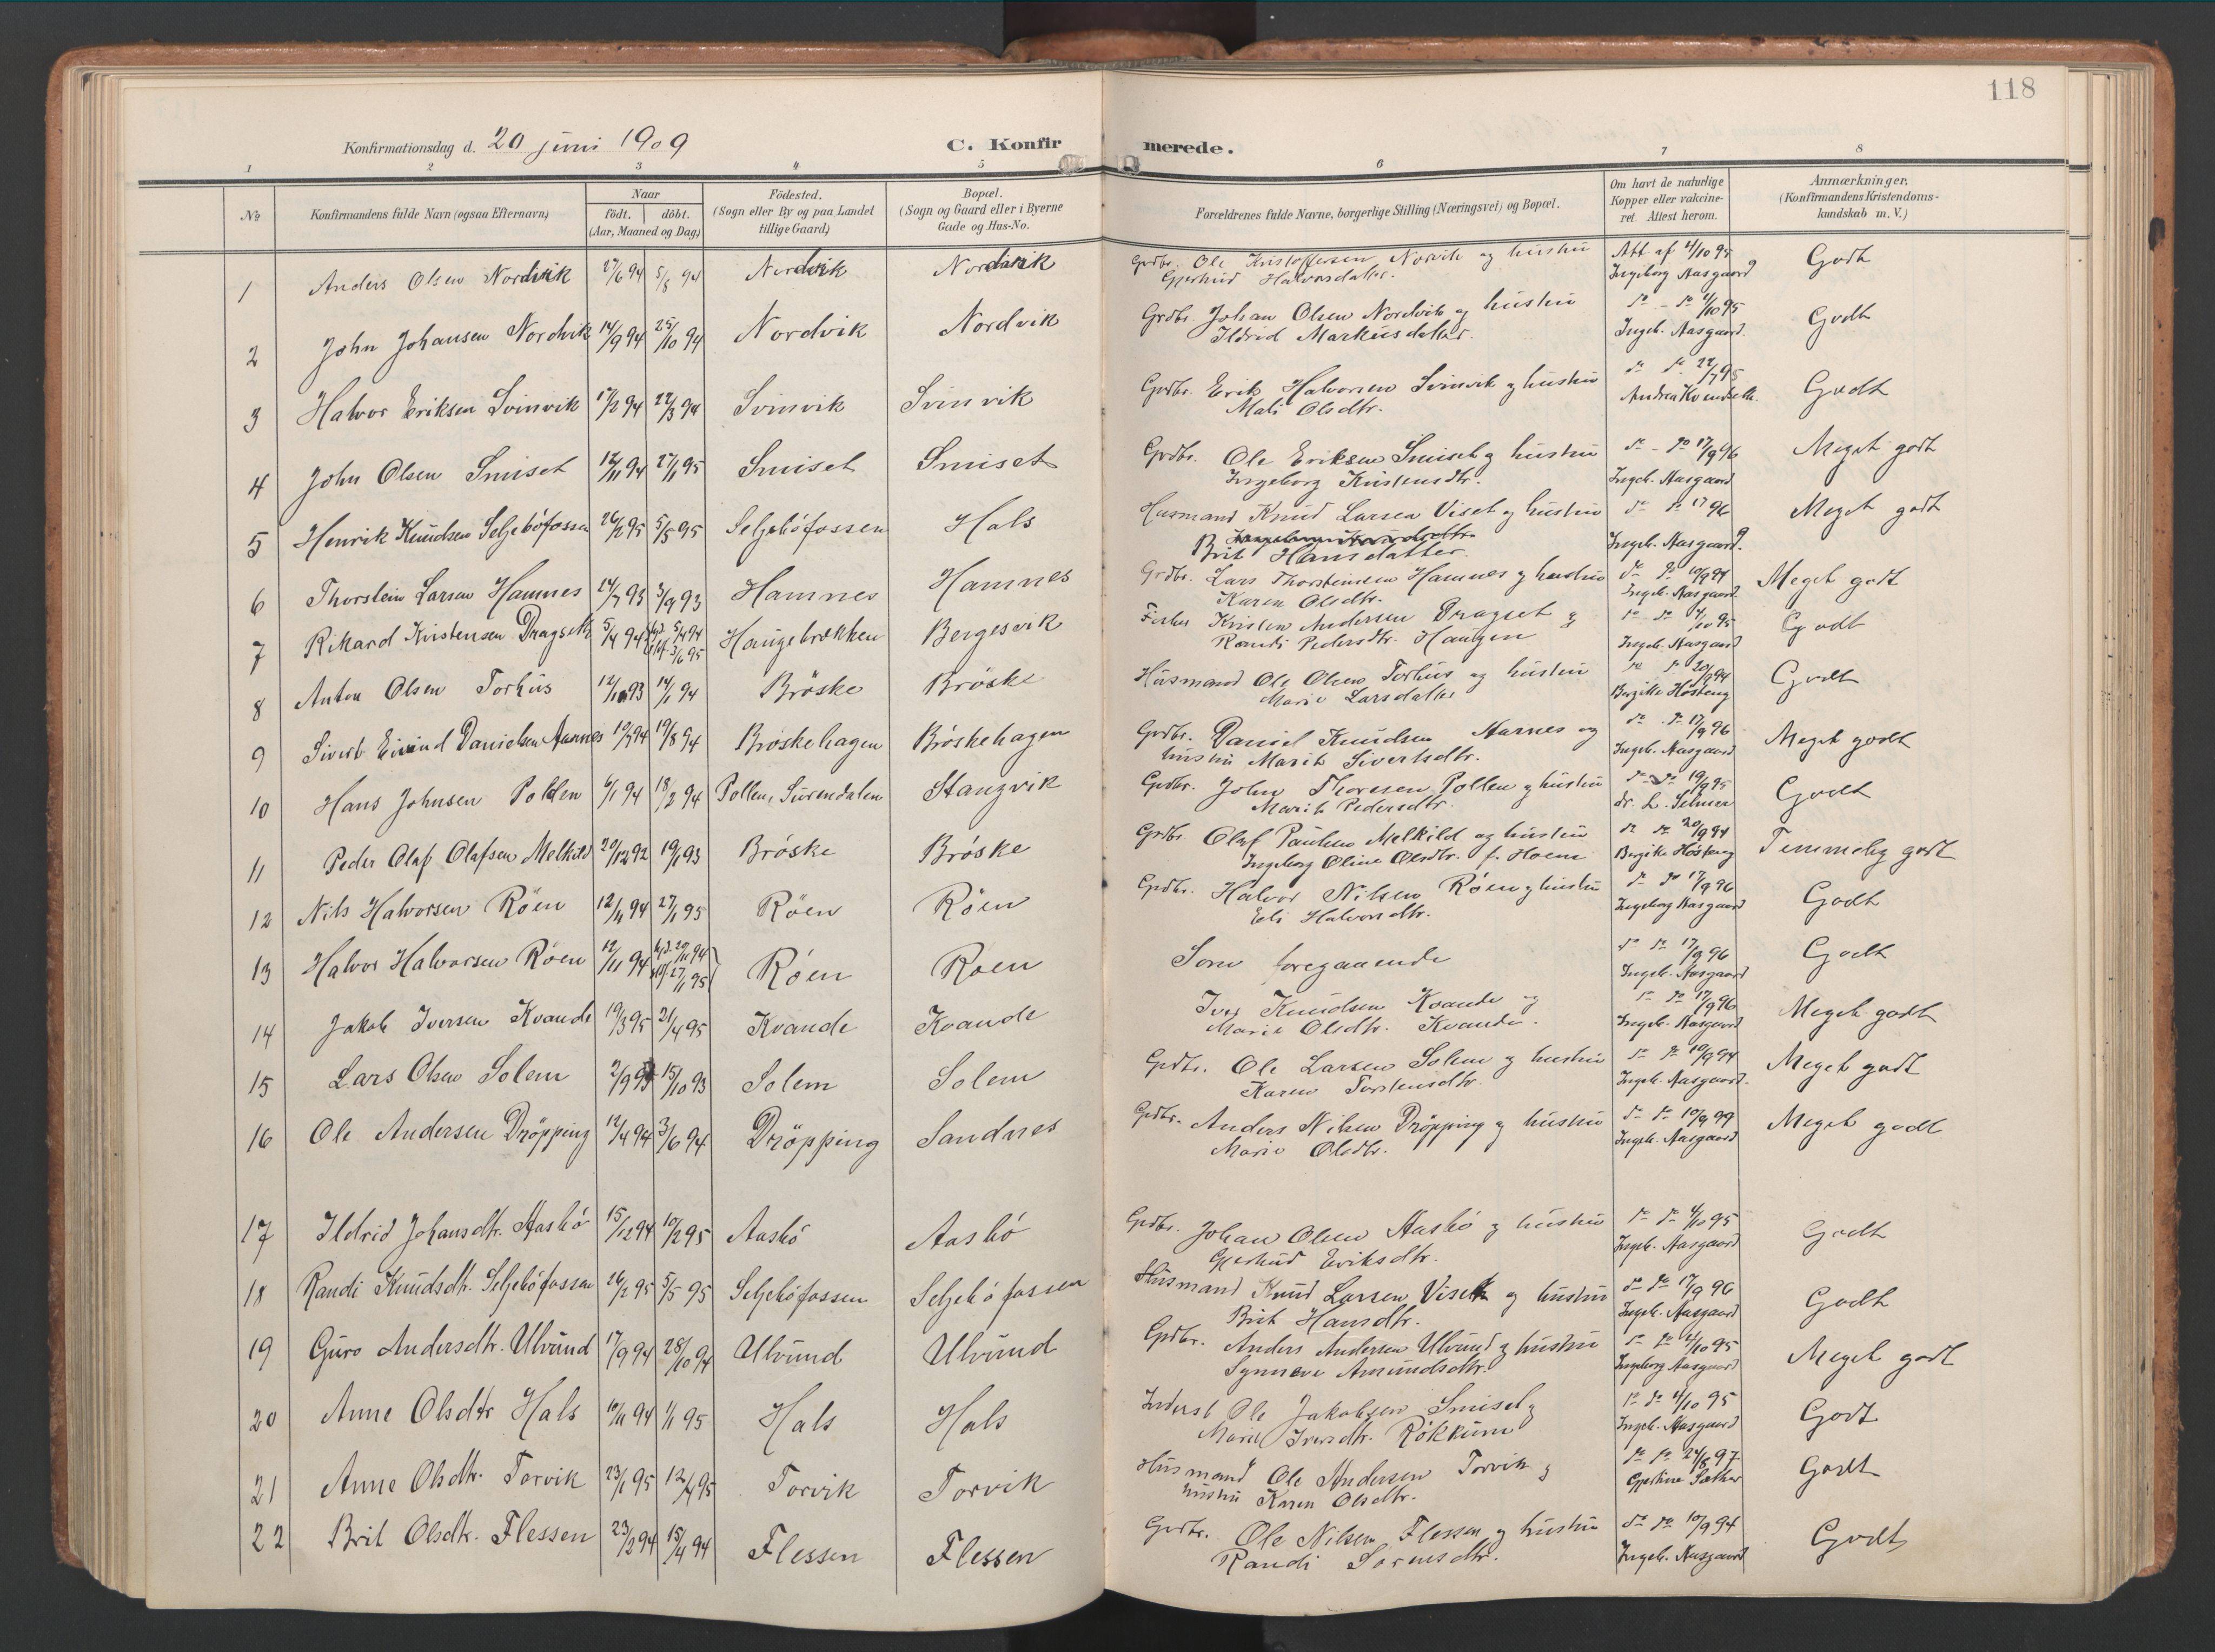 118
Konfirmationsdag d. 20 juni 1909
C. Konfirmerede.
1 2 3 4 5 6 7 8
No. Konfirmandens fulde Navn (ogsaa Efternavn)
Naar födt. döbt. (Aar, Maaned og Dag)
Födested. (Sogn eller By og paa Landet tillige Gaard)
Bopæl. (Sogn og Gaard eller i Byerne Gade og Hus-No.
Forældrenes fulde Navne, borgerlige Stilling (Næringsvei) og Bopæl.
Om havt de naturlige Kopper eller vakcineret. Attest herom.
Anmærkninger. (Konfirmandens Kristendomskundskab m. V.)
1 Anders Olsen Nordvik 27/6 94 5/8 94 Nordvik Nordvik Grdbr. Ole Kristoffersen Nordvik og hustru Att af 4/10 95 Godt
Gjertrud Halvorsdatter. Ingeborg Aasgaard
2 John Johansen Nordvik 14/9 94 25/10 94 Nordvik Nordvik Grdbr. Johan Olsen Nordvik og hustru do - do 4/10 95 Godt
Ildrid Markusdatter. Ingeb. Aasgaard.
3 Halvor Eriksen Svinvik 17/2 94 22/3 94 Svinvik Svinvik Grdbr. Erik Halvorsen Svinvik og hustru do do 22/7 95 Godt
Mali Olsdtr. Andrea
4 John Olsen Smiset 12/11 94 27/1 95 Smiset Smiset Grdbr. Ole Eriksen Smiset og hustru do - do 17/9 96 Meget godt
Ingeborg Kristensdtr. Ingeb. Aasgaard
5 Henrik Knudsen Seljebófossen 26/2 95 5/5 95 Seljebófossen Hals Husmand Knud Larsen Viset og hustru do do 17 96 Meget godt
Brit Hansdatter. Ingeb. Aasgaard.
6 Thorstein Larsen Hamnes 24/7 93 3/9 93 Hamnes Hamnes Grdbr. Lars Thorstensen Hamnes og hustru do do 10/9 94 Meget godt
Karen Olsdtr. Ingeb. Aasgaard
7 Rikard Kristensen Dragseth 5/4 94 hjd. 5/4 94 3/6 95 Haugebrekken Bergesvik Fisker Kristen Andersen Dragset og do do 4/10 95 Godt
Randi Pedersdtr. Haugen Ingeb. Aasgaard
8 Anton Olsen Torhus 12/11 93 14/1 94 Bröske Bröske Husmand Ole Olsen Torhus og hustru do do 20/9 94 Godt
Marie Larsdatter Bergitte Hösteng
9 Sivert Eivind Danielsen Aarnes 19/7 94 19/8 94 Bröskehagen Bröskehagen Grdbr. Daniel Knudsen Aarnes og do do 17/9 96 Meget godt
hustru Marit Sivertsdtr. Ingeb. Aasgaard
10 Hans Johnsen Pollen 6/1 94 18/2 94 Pollen, Surendalen Stangvik Grdbr. John Thoresen Pollen og hustru do do 19/9 95 Godt
Marit Pedersdtr. dr. L. Selmer
11 Peder Olaf Olafsen Melkild 20/12 92 19/1 93 Bröske Bröske Grdbr. Olaf Paulsen Melkild og hustru do do 20/9 94 Temmelig godt
Ingeborg Oline Olsdtr. f. Hoem Bergitte Hösteng
12 Nils Halvorsen Röen 12/11 94 27/1 95 Röen Röen Grdbr. Halvor Nilsen Röen og hustru do do 17/9 96 Godt
Eli Halvorsdtr. Ingeborg Aasgaard
13 Halvor Halvorsen Röen 12/11 94 hjd. 20/11 94 27/1 95 Röen Roen Som foregaaende do do 17/9 96 Godt
Ingeb. Aasgaard
14 Jakob Iversen Kvande 19/3 95 21/4 95 Kvande Kvande Iver Knudsen Kvande og do do 17/9 96 Meget godt
Marie Olsdtr. Kvande. Ingeb. Aasgaard
15 Lars Olsen Solem 2/9 93 15/10 93 Solem Solem Grdbr. Ole Larsen Solem og hustru do do 10/9 94 Meget godt
Karen Torstensdtr. Ingeb. Aasgaard.
16 Ole Andersen Dröpping 12/4 94 3/6 94 Dröpping Sandnes Grdbr. Anders Nilsen Dröpping og hustru do do 10/9 99 Meget godt
Marie Olsdtr. Ingeb. Aasgaard
17 Ildrid Johansdtr. Aasbö 15/12 94 10/2 95 Aasbó Aasbó Grdbr. Johan Olsen Aasbó og hustru do do 4/10 95 Godt
Gjertrud Eriksdtr. Ingeb. Aasgaard
18 Randi Knudsdtr. Seljebófossen 26/2 95 5/5 95 Seljebófossen Seljebófossen Husmand Knud Larsen Viset og hustru do do 17/9 96 Godt
Brit Hansdtr. Ingeb. Aasgaard
19 Guro Andersdtr. Ulvund 17/9 94 28/10 94 Ulvund Ulvund Grdbr. Anders Andersen Ulvund og hustru do do 4/10 95 Meget godt
Synneve Amundsdtr. Ingeborg Aasgaard
20 Anne Olsdtr Hals 10/11 94 1/1 95 Hals Hals Inderst Ole Jakobsen Smiset og do do 4/10 95 Godt
Marit Iversdtr. Rökkum Ingeb. Aasgaard
21 Anne Olsdtr. Torvik 23/1 95 12/4 95 Torvik Torvik Husmand Ole Andersen Torvik og do do 24/8 97 Godt
hustru Karen Olsdtr. Gjertine Sæther
22 Brit Olsdtr. Flessen 23/2 94 15/4 94 Flessen Flessen Grdbr. Ole Nilsen Flessen og hustru do do 10/9 94 Godt
Randi Sörensdtr. Ingeb. Aasgaard